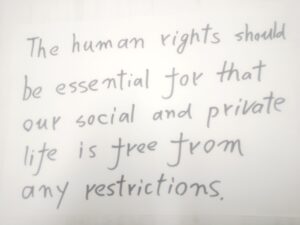 The human rights should
be essential for that
our social and private
life is free from
any restrictions.